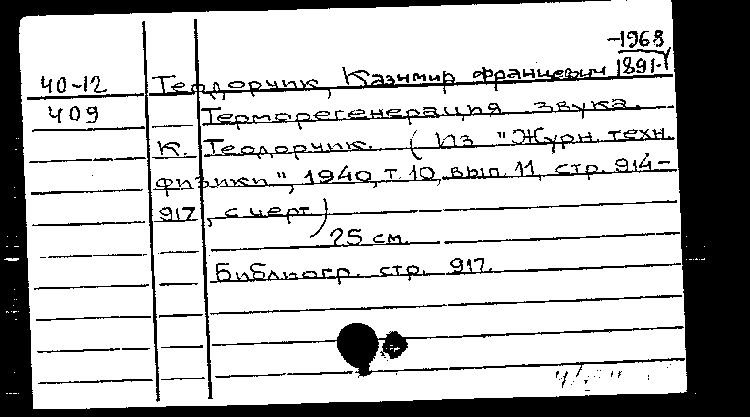 -1968
40-12 Теодорчик, Казимир Францевич 1891-
409 Терморегенерация звука.
К. Теодорчик. (Из "Журн. техн.
физики", 1940, т. 10, вып. 11, стр. 914-
917, с черт.)
25 см.
Библиогр. стр. 917.